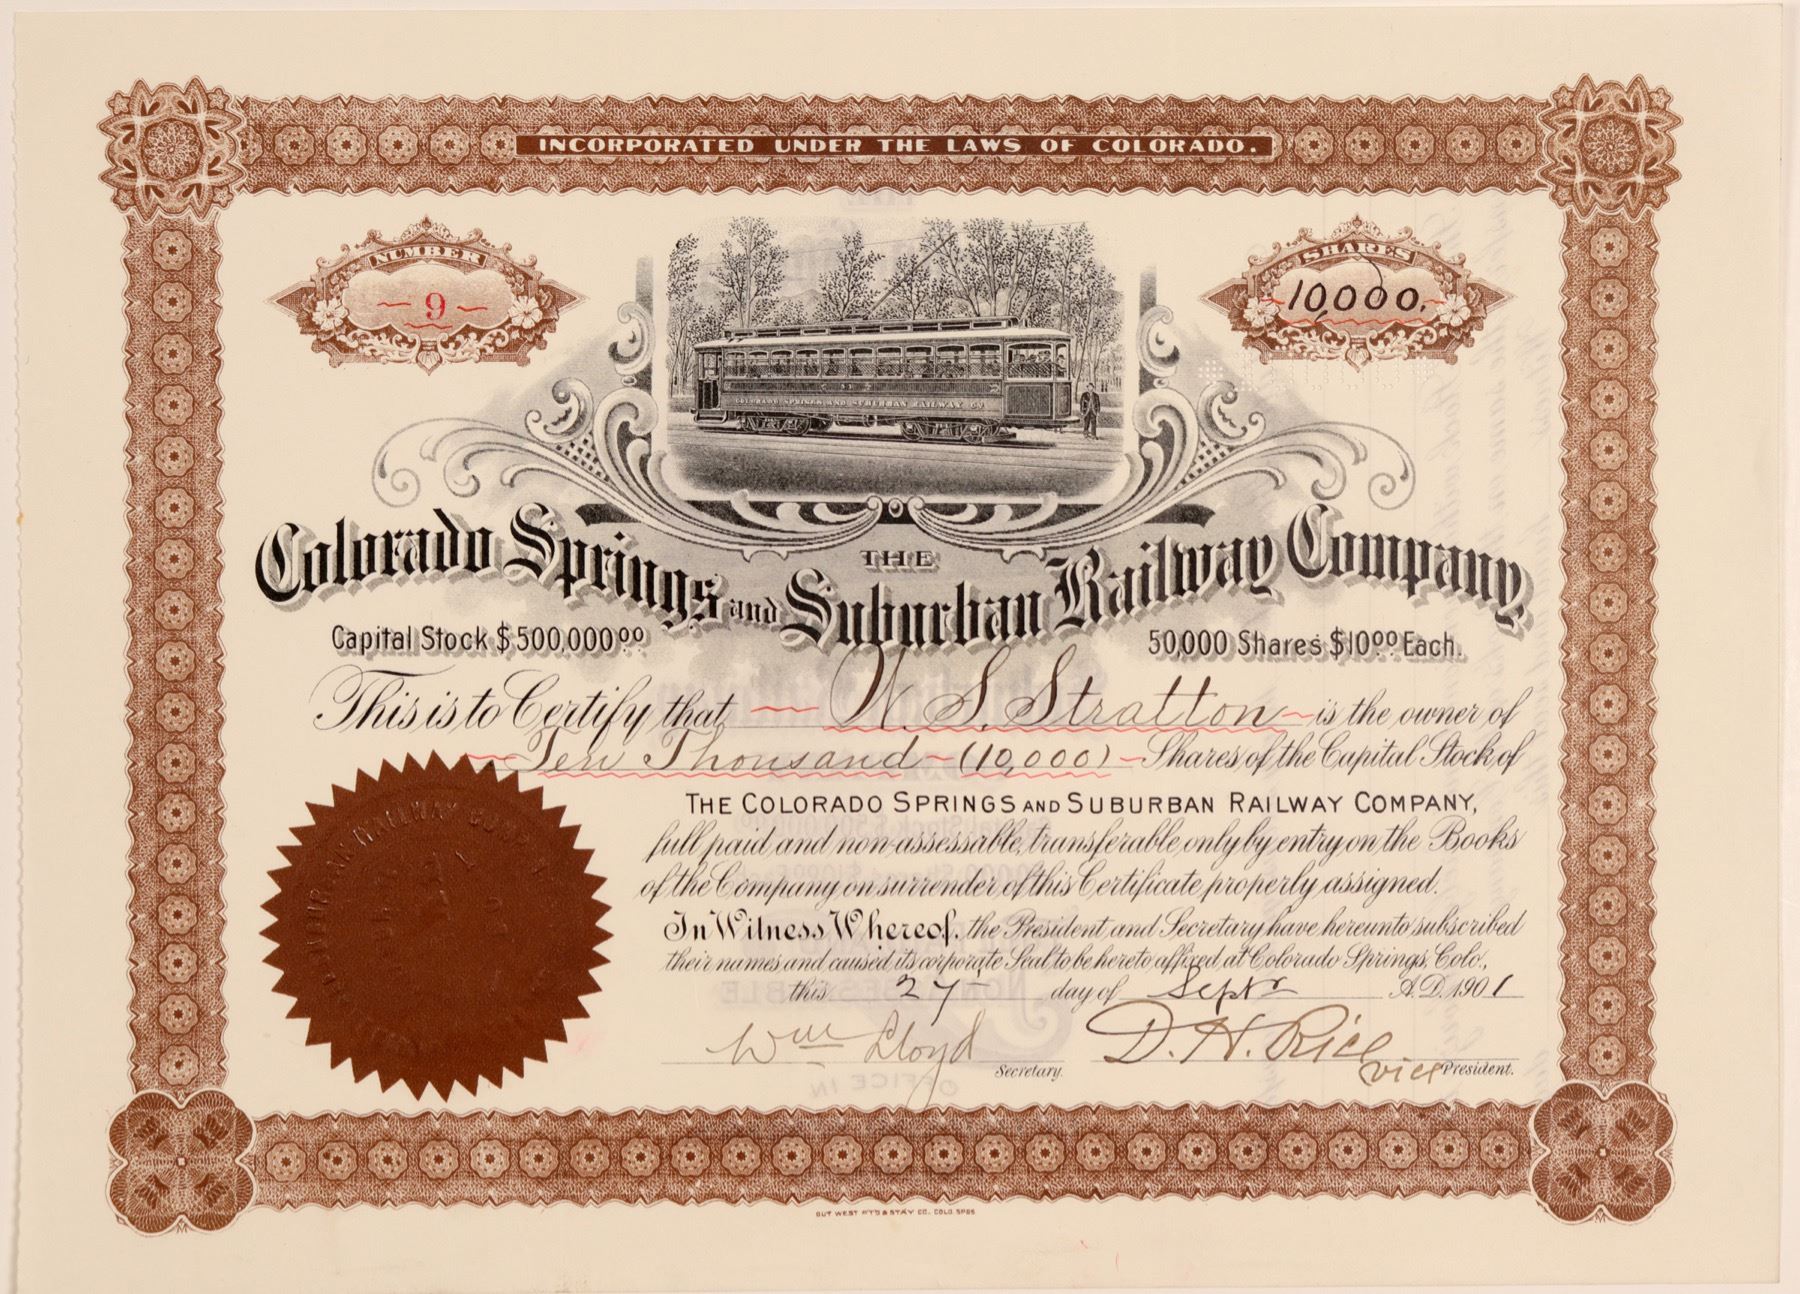 INCORPORATED UNDER THE LAWS OF COLORADO.
NUMBER
9
SHARES
10,000.
COLORADO SPRINGS AND SUBURBAN RAILWAY CO.
THE
Colorado Springs and Suburban Railway Company,
Capital Stock $500,000.00
50,000 Shares $10.00 Each.
This is to Certify that W. S. Stratton is the owner of
Ten Thousand (10,000) Shares of the Capital Stock of
THE COLORADO SPRINGS AND SUBURBAN RAILWAY COMPANY,
full paid and non-assessable, transferable only by entry on the Books
of the Company on surrender of this Certificate properly assigned.
In Witness Whereof, the President and Secretary have hereunto subscribed
their names and caused its corporate Seal to be hereto affixed, at Colorado Springs, Colo.,
this 27 day of Septr A.D. 1901
Wm Lloyd
Secretary.
D. H. Rice
vice President.
OUT WEST PT'G & STA'Y CO. COLO SPGS